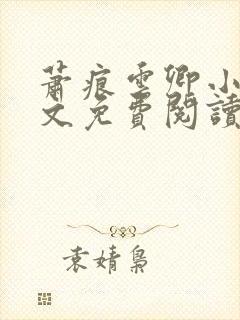 蕭痕雲卿小
文免費閱讀
袁婧梟